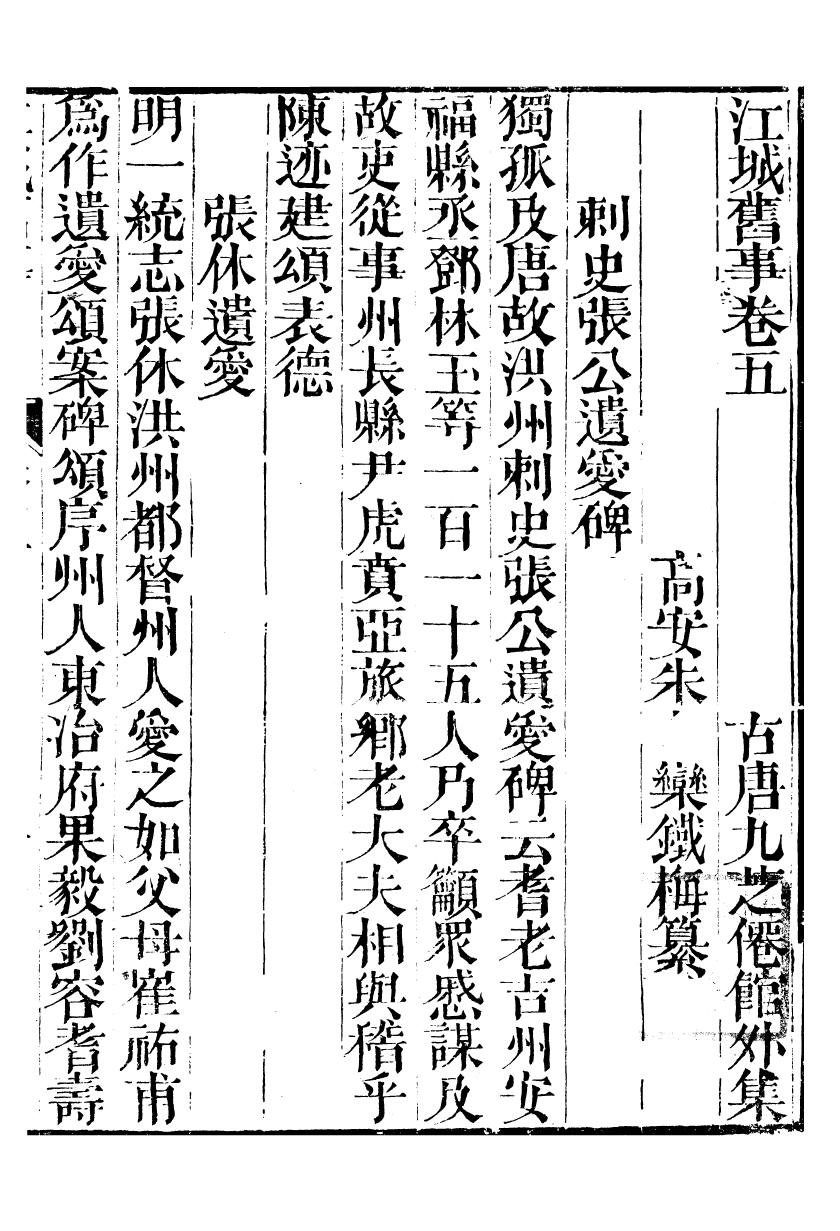 江城舊事卷五　古唐九芝僊館外集
高安朱　欒鐵梅纂
刺史張公遺愛碑
獨孤及唐故洪州刺史張公遺愛碑云耆老吉州安
福縣丞鄧林玉等一百一十五人乃卒籲眾慼謀及
故吏從事州長縣尹虎賁亞旅鄉老大夫相與稽乎
陳迹建頌表德
張休遺愛
明一統志張休洪州都督州人愛之如父母崔祐甫
爲作遺愛頌案碑頌序州人東冶府果毅劉容耆壽